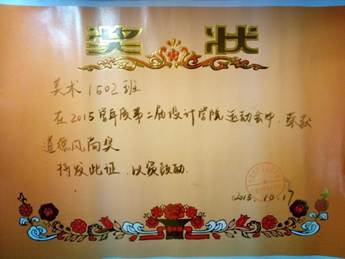 奖状
美术1502班
在2015学年度第二届设计学院运动会中,荣获
道德风尚奖
特发此证,以资鼓励。
2015.10.17